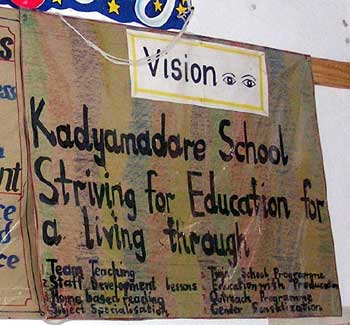 Vision
Kadyamadare School
Striving for Education for
a living through
Team Teaching
Staff Development lessons
Home based reading
Subject Specialisation
Twin School Programme
Education with Production
Outreach Programme
Gender Sensitization